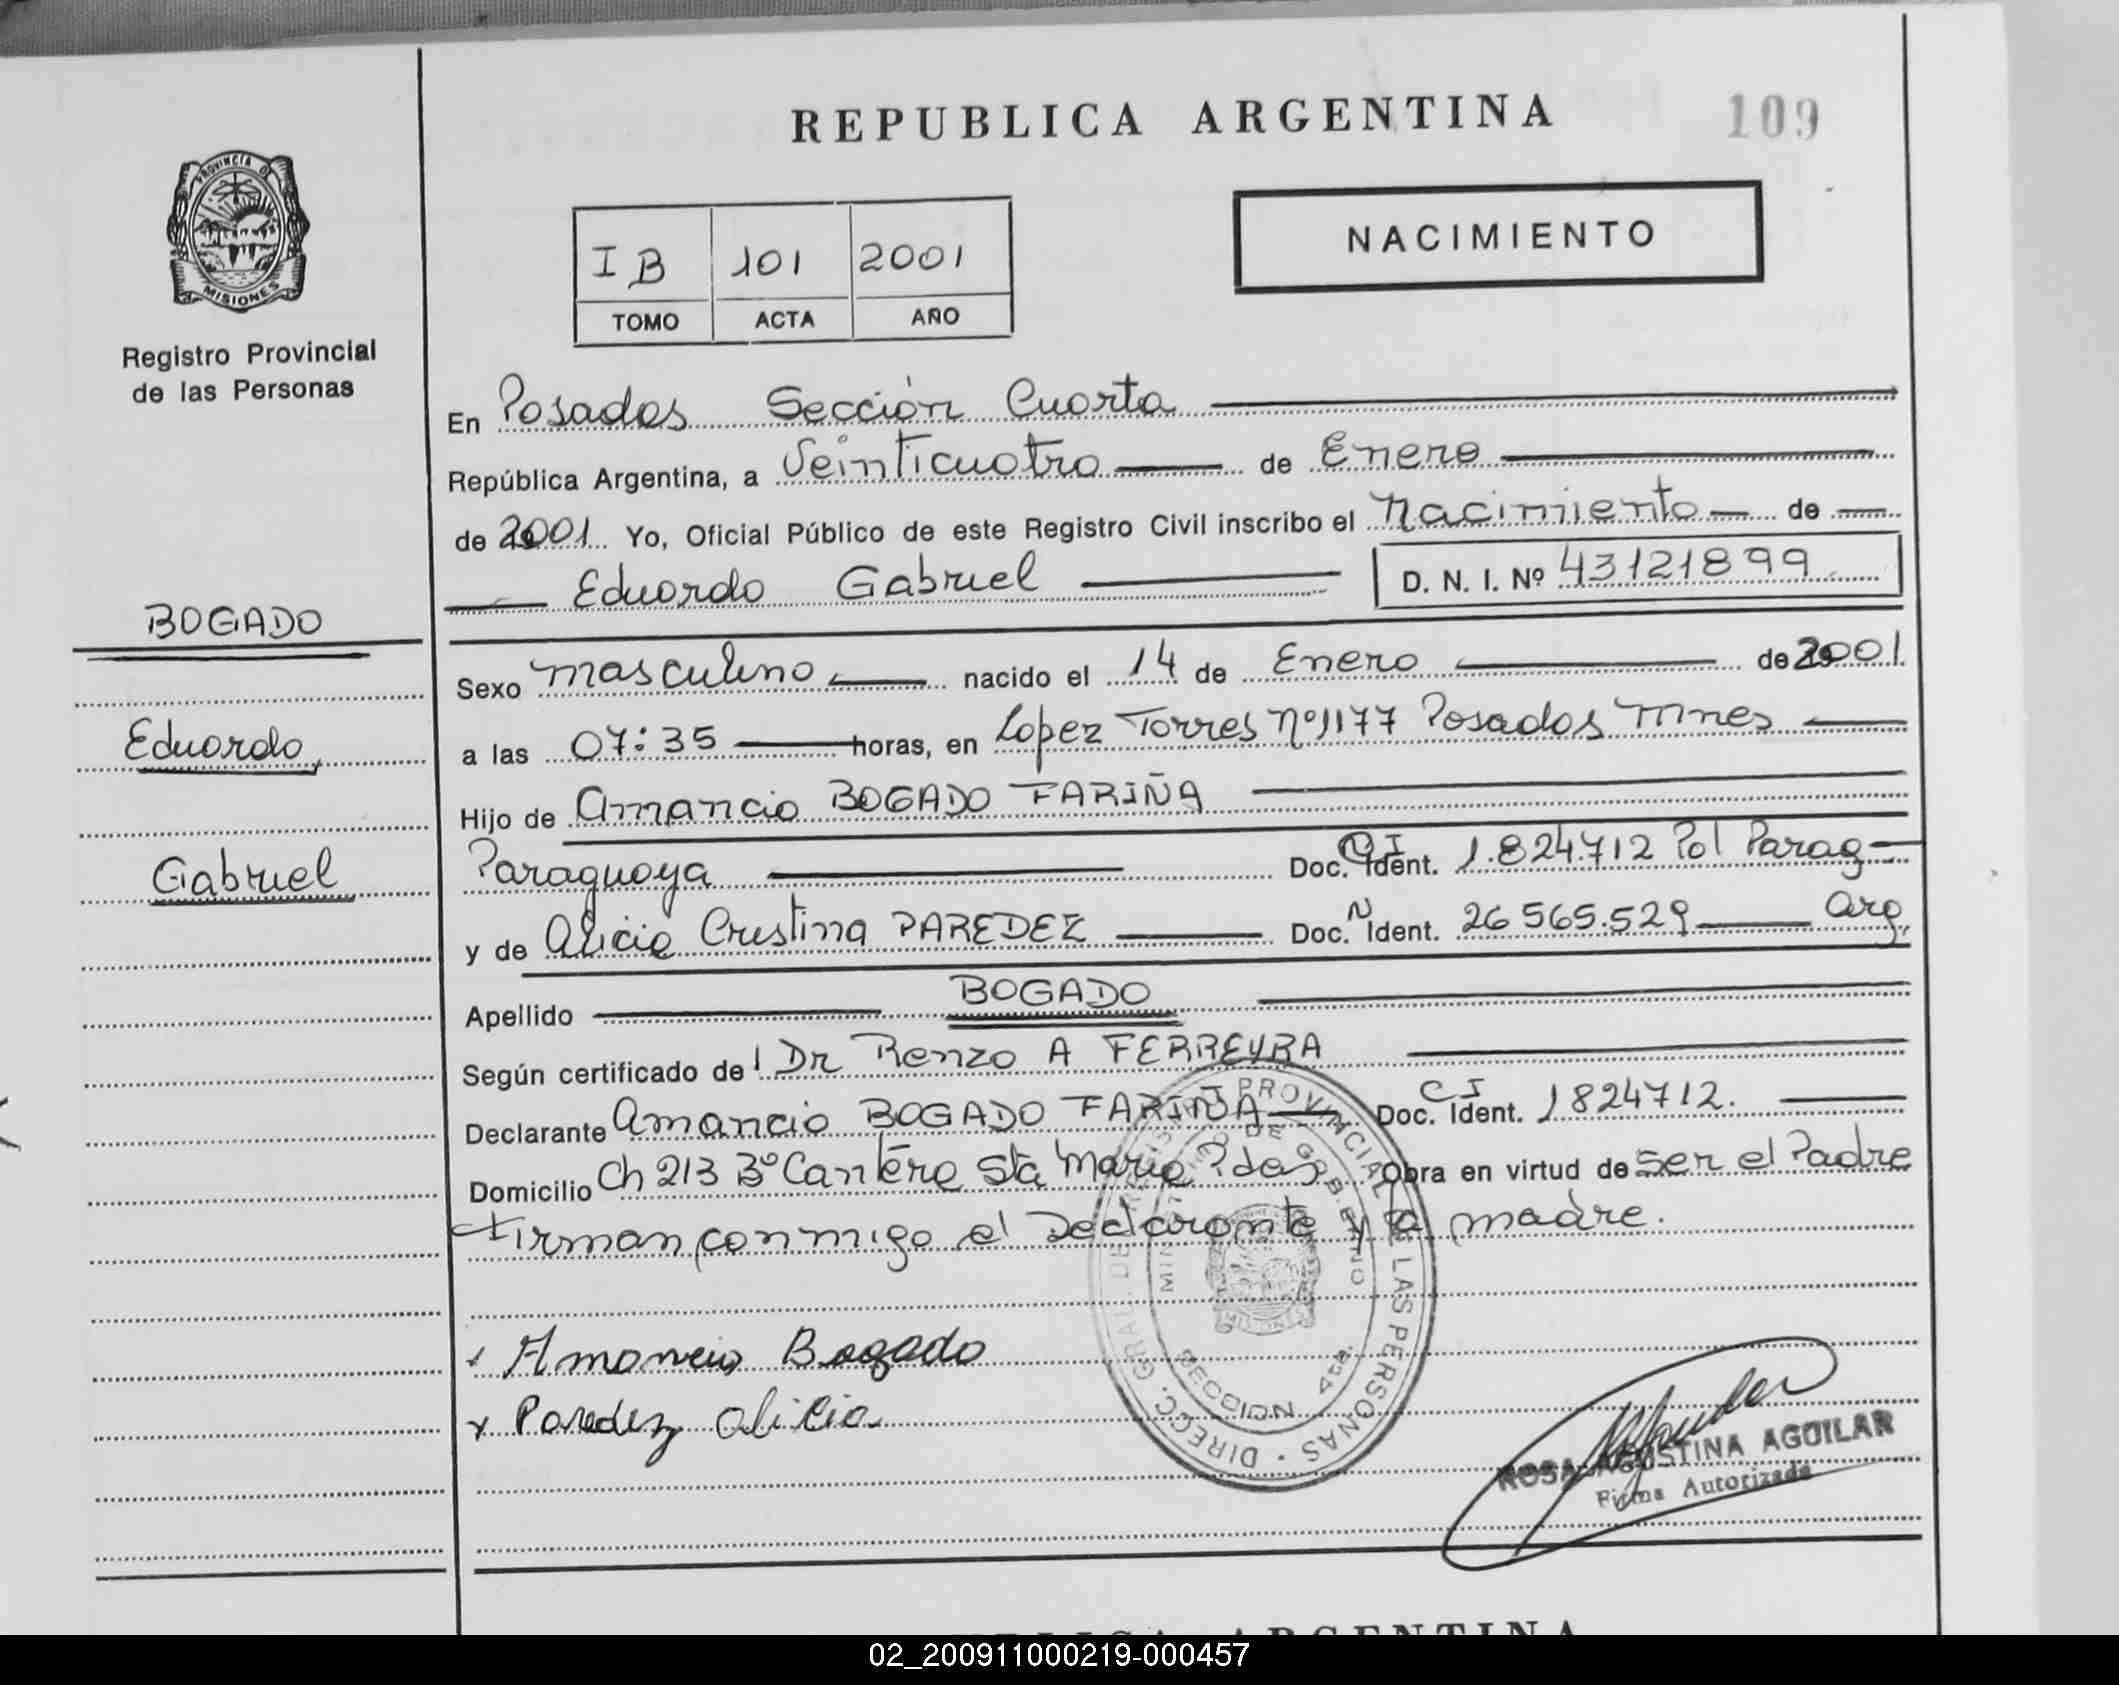 REPUBLICA ARGENTINA
109
PROVINCIA DE
MISIONES
Registro Provincial
de las Personas
I B 101 2001
TOMO ACTA AÑO
NACIMIENTO
En Posadas Sección Cuarta
República Argentina, a Veinticuatro de Enero
de 2001 Yo, Oficial Público de este Registro Civil inscribo el Nacimiento de
Eduardo Gabriel D. N. I. Nº 43121899
BOGADO
Eduardo
Gabriel
Sexo masculino nacido el 14 de Enero de 2001
a las 07:35 horas, en Lopez Torres nº 1177 Posadas Mnes
Hijo de Amancio BOGADO FARIÑA
Paraguaya Doc. CI Ident. 1.824.712 Pol Parag
y de Alicia Cristina PAREDEZ Doc. N Ident. 26 565.529 Arg
Apellido BOGADO
Según certificado del Dr Renzo A FERREYRA
Declarante Amancio BOGADO FARIÑA Doc. CI Ident. 1824712.
Domicilio Ch 213 Bº Cantera Sta Maria Pdas Obra en virtud de ser el Padre
Firman conmigo el Declarante y la madre.
Amancio Bogado
Paredez Alicia
DIRECC. GRAL. DE REGIST. PROVINCIAL DE LAS PERSONAS
MINISTERIO DE GOBIERNO
SECCION 4ta.
ROSA AGUSTINA AGUILAR
Firma Autorizada
REPUBLICA ARGENTINA
02_200911000219-000457